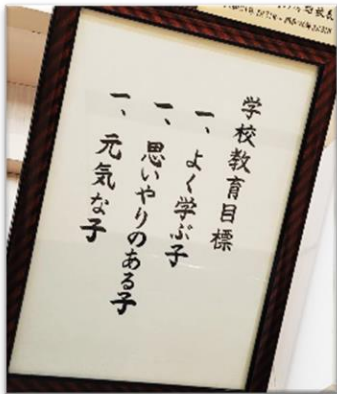 学校教育目標
一、よく学ぶ子
一、思いやりのある子
一、元気な子